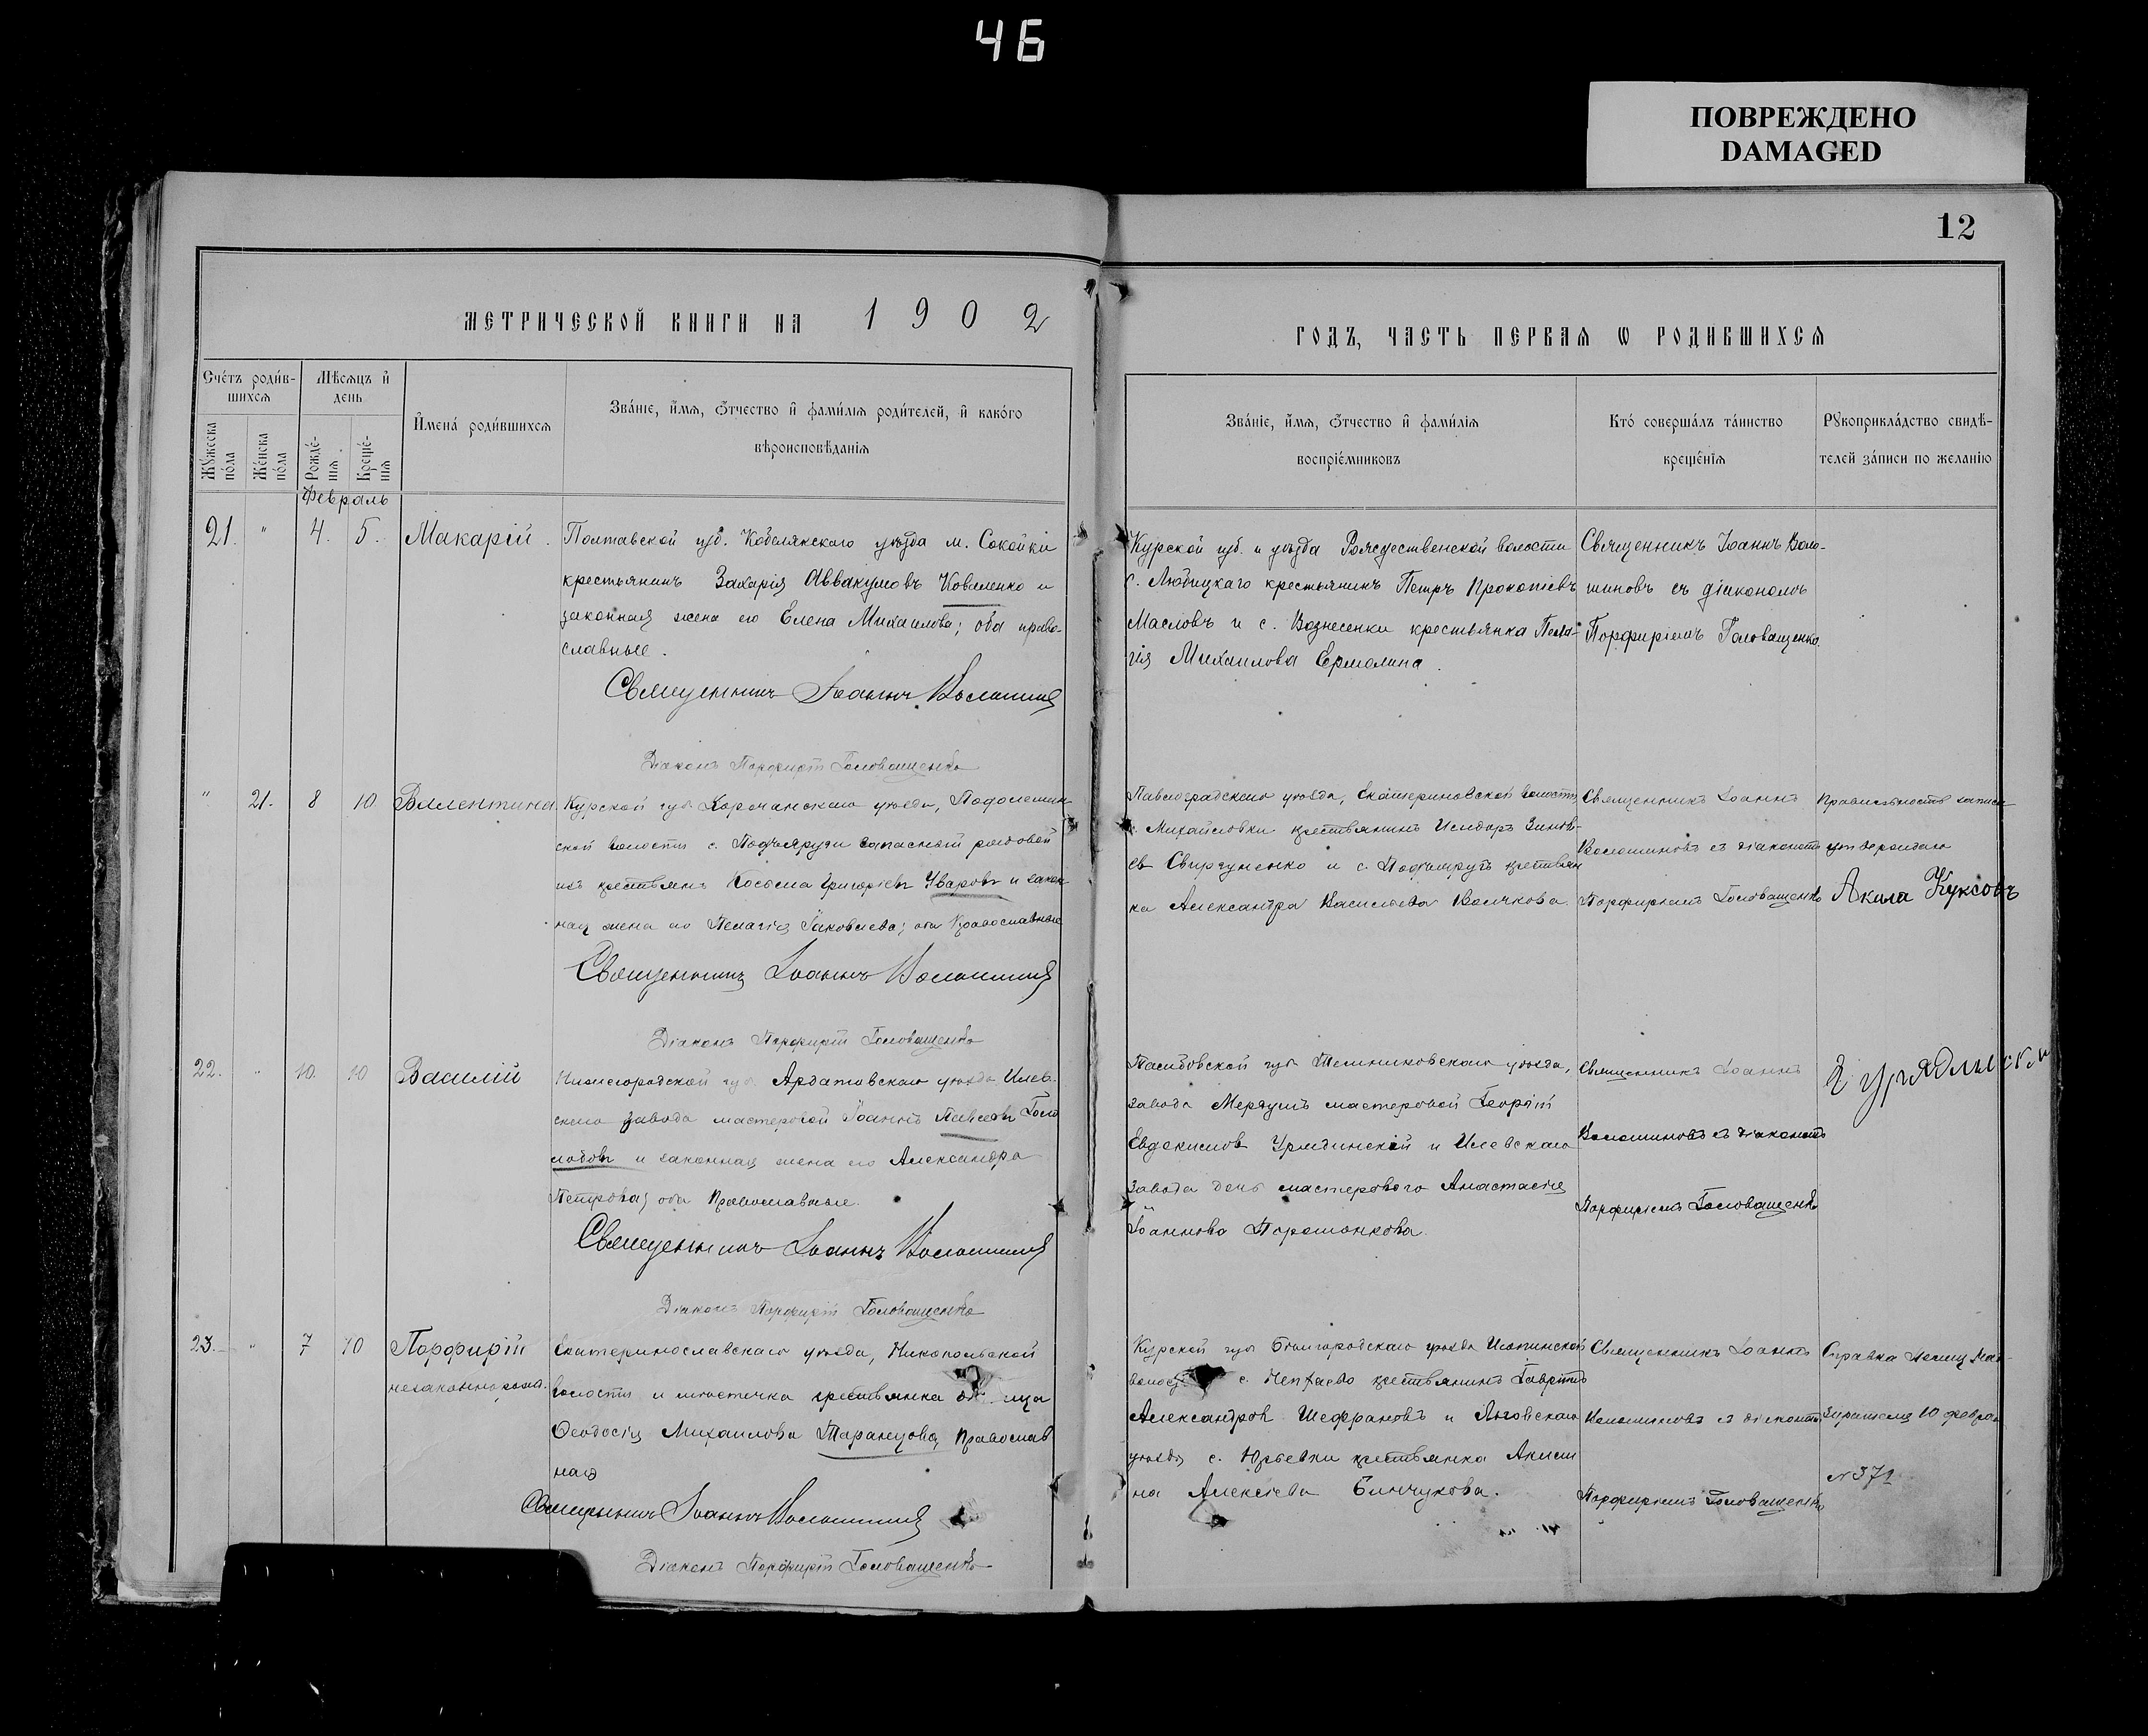 46
ПОВРЕЖДЕНО
DAMAGED
12
МЕТРИЧЕСКОЙ КНИГИ НА 1902
ГОДЪ, ЧАСТЬ ПЕРВАЯ Ѡ РОДИВШИХСЯ
Счетъ родив-
шихся
Мѣсяцъ и
день
Мужеска
пола
Женска
пола
Рожде-
нія
Креще-
нія
Имена родившихся
Званіе, имя, отчество и фамилія родителей, и какого
вѣроисповѣданія
Званіе, имя, отчество и фамилія
воспріемниковъ
Кто совершалъ таинство
крещенія
Рукоприкладство свидѣ-
телей записи по желанію
Февраль
21. " 4. 5. Макарій.
Полтавской губ. Кобелякскаго уѣзда м. Соколки
крестьянинъ Захарія Аввакумовъ Коваленко и
законная жена его Елена Михаилова; оба право-
славные.
Священникъ Іоаннъ Волошинъ
Діаконъ Порфирій Головащенко
Курской губ. и уѣзда Рождественской волости
с. Любицкаго крестьянинъ Петръ Прокопіевъ
Масловъ и с. Вознесенки крестьянка Пела-
гія Михаилова Ермолина.
Священникъ Іоаннъ Воло-
шиновъ съ діакономъ
Порфиріемъ Головащенко.
" 21. 8 10 Валентина
Курской губ. Корочанскаго уѣзда,
ской волости с. Подъяруги запасный рядовой
изъ крестьянъ Косьма Григоріевъ Уваровъ и закон
ная жена его Пелагія Іаковлева; оба Православные
Священникъ Іоаннъ Волошинъ
Діаконъ Порфирій Головащенко
Павлоградскаго уѣзда, Екатериновской волости
с. Михайловки крестьянинъ Исидоръ Зиновь-
ев и с. Подъяругъ крестьян
ка Александра Васильева Волчкова.
Священникъ Іоаннъ
Волошиновъ съ діакономъ
Порфиріемъ Головащенко
Правильность записи
утверждаю
Акила Куксовъ
22. " 10 10 Василій
Нижегородской губ. Ардатовскаго уѣзда Илев-
скаго завода мастеровой Іоаннъ Голо
и законная жена его Александра
Петрова; оба Православные.
Священникъ Іоаннъ Волошинъ
Діаконъ Порфирій Головащенко
Тамбовской губ. Темниковскаго уѣзда,
завода мастеровой Георгій
Евдокимов и Илевскаго
завода дочь мастероваго Анастасія
Іоаннова
Священникъ Іоаннъ
Волошиновъ съ діакономъ
Порфиріемъ Головащенко
23. " 7 10 Порфирій
незаконнорожд.
Екатеринославскаго уѣзда, Никопольской
волости и мѣстечка крестьянка
Ѳеодосія Михаилова Таранцова, Православ
ная
Священникъ Іоаннъ Волошинъ
Діаконъ Порфирій Головащенко
Курской губ. Бѣлгородскаго уѣзда
с. крестьянинъ Гавріилъ
Александров и
уѣзда с. Юрьевки крестьянка Акили
на Алексѣева
Священникъ Іоаннъ
Волошиновъ съ діакономъ
Порфиріемъ Головащенко
Справка
10 февра